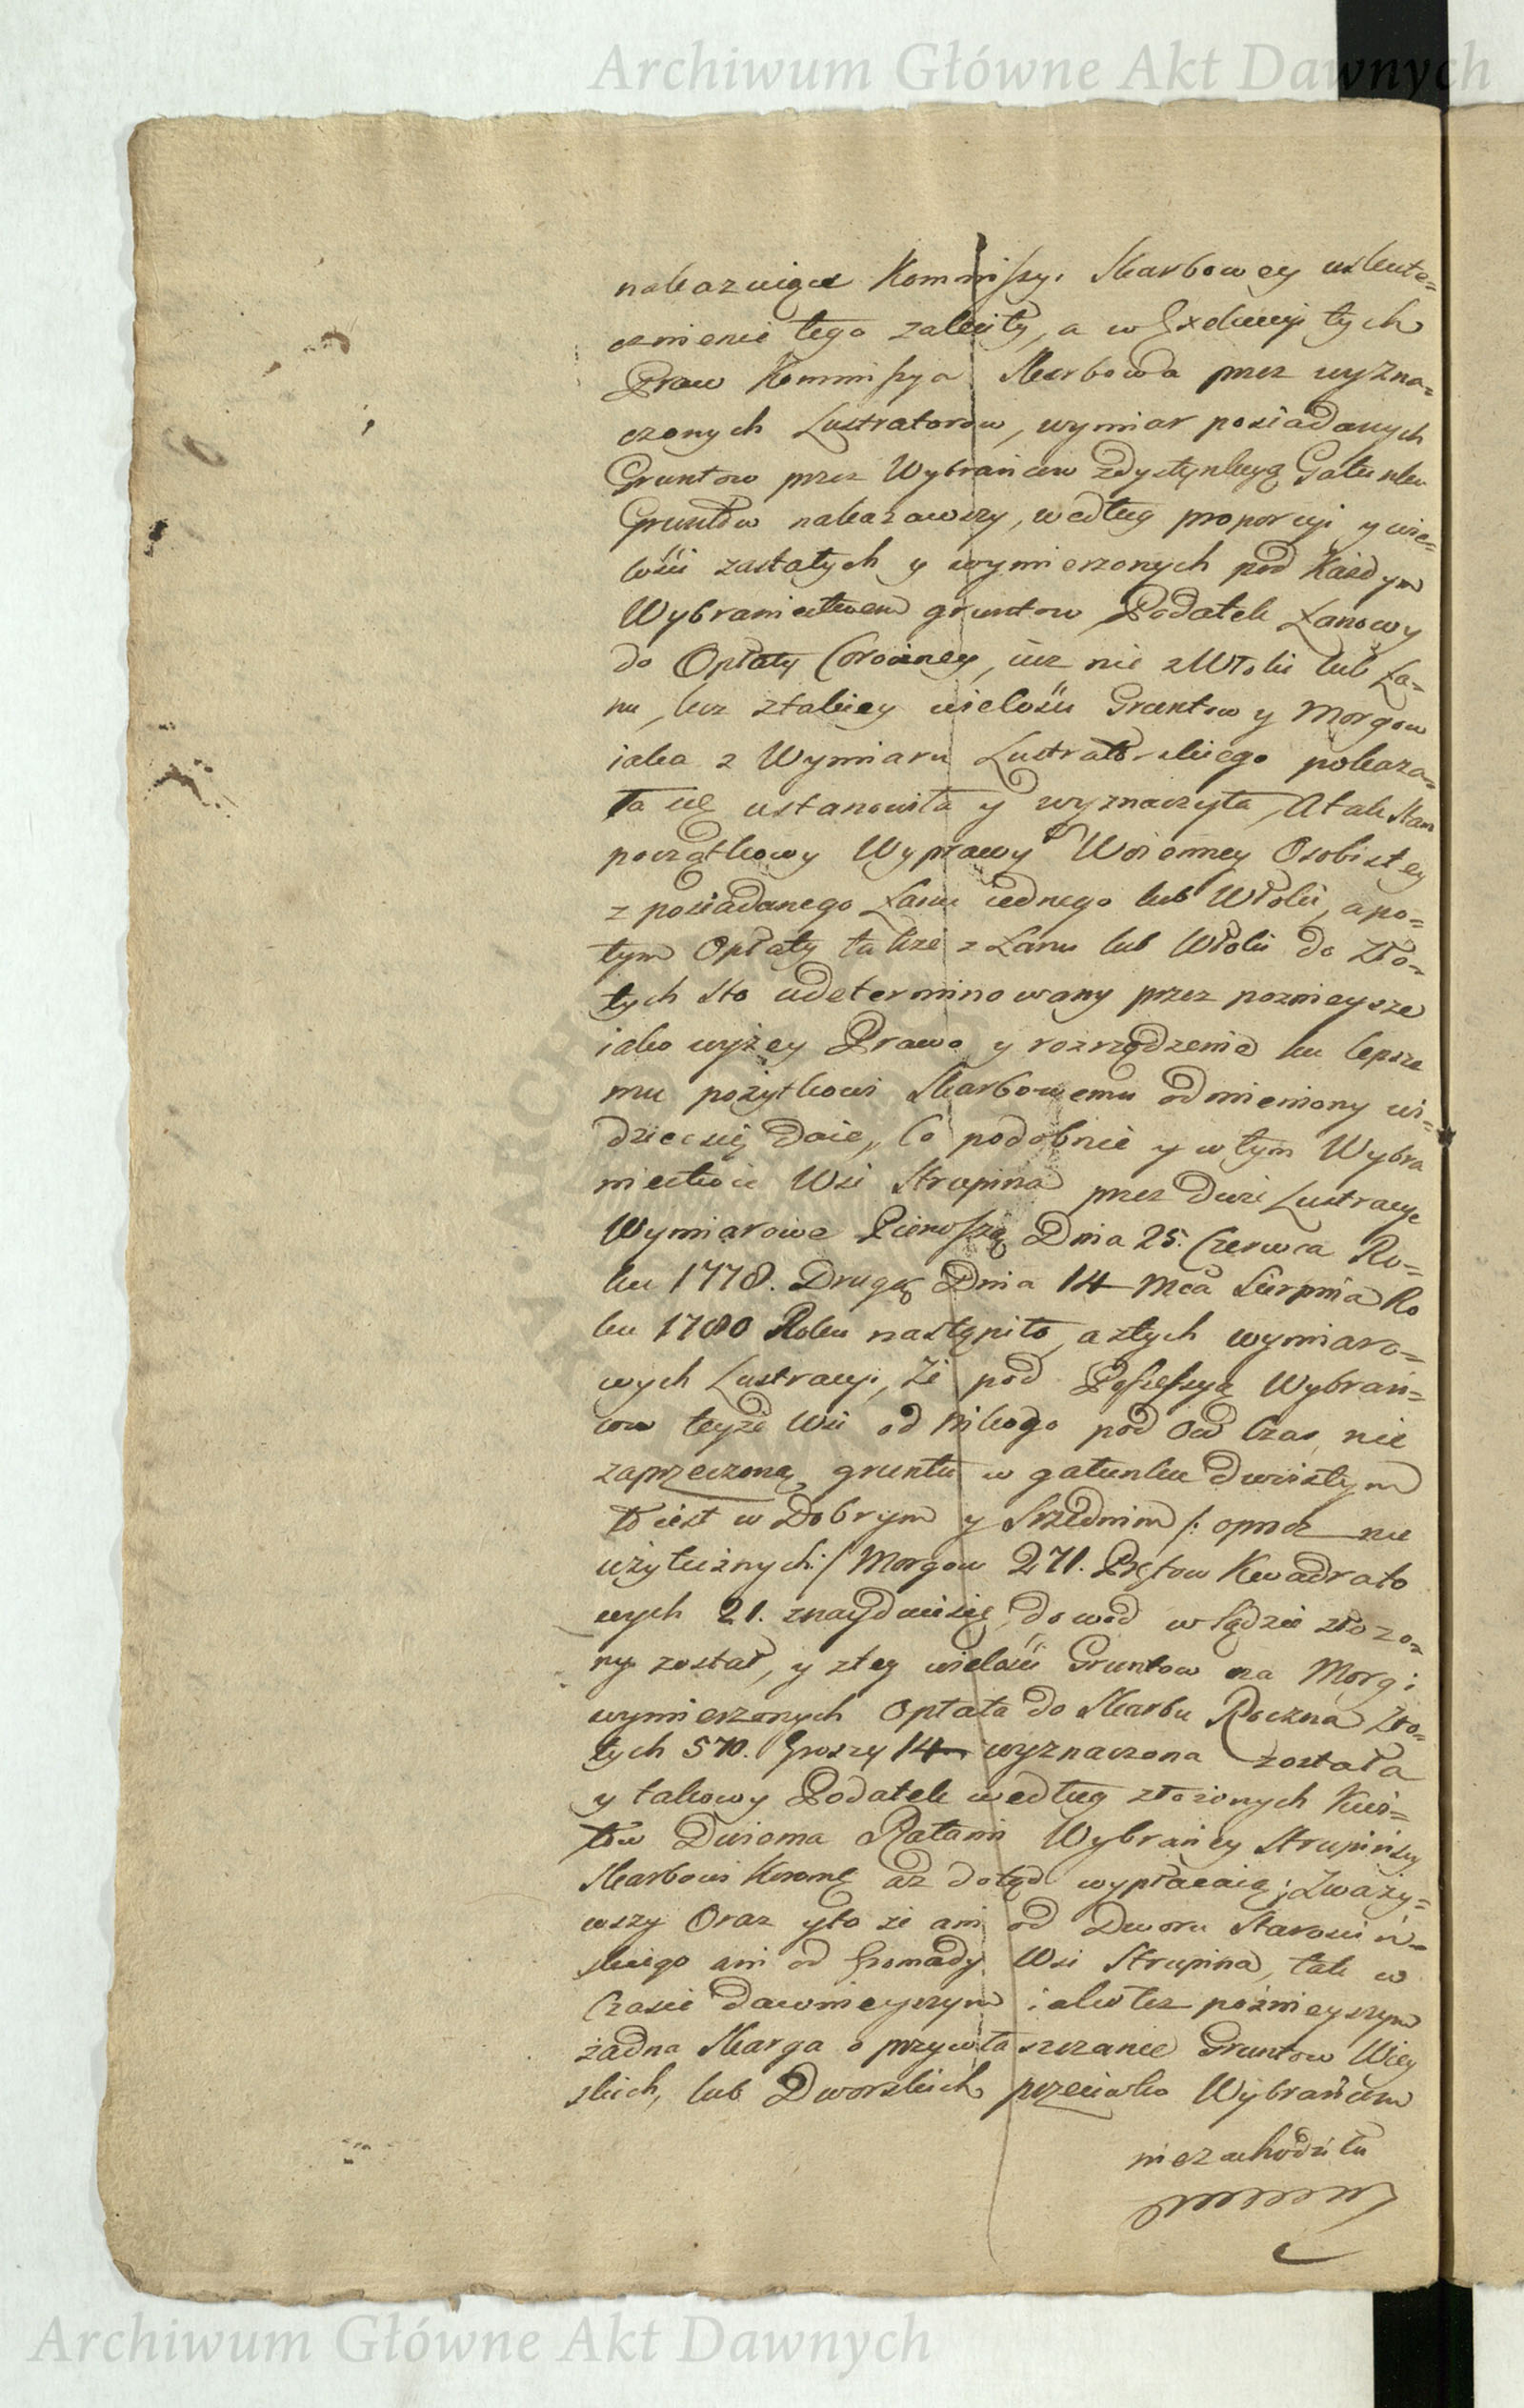 Archiwum Główne Akt Dawnych
nakazuiące Kommissyi Skarbowey uskute=
cznienie tego zaleciły, a w Exekucyi tych
Praw Kommissya Skarbowa przez wyzna=
czonych Lustratorow, wymiar posiadanych
Gruntow przez Wybrańcow zdystynkcyą Gatunku
Gruntow nakazawszy, według proporcyi y wie=
lości zastałych y wymierzonych pod każdym
Wybraniectwem gruntow Podatek Łanowy
do Opłaty Coroczney, iuż nie z Włoki lub Ła=
nu, lecz z takiey wielości Gruntow y Morgow
iaka z Wymiaru Lustratorskiego pokaza=
ła się ustanowiła y wyznaczyła, A tak Stan
początkowy Wyprawy Woienney Osobistey
z posiadanego Łanu iednego lub Włoki, a po=
tym Opłaty także z Łanu lub Włoki do Zło=
tych sto udeterminowany przez poznieysze
iako wyżey Prawo y rozrządzenie ku lepsze
mu pożytkowi Skarbowemu odmieniony wi=
dziec się daie, Co podobnie y w tym Wybra
niectwie Wsi Strupina przez dwie Lustracye
Wymiarowe Pierwszą Dnia 25. Czerwca Ro=
ku 1778. Drugą Dnia 14 Mca Sierpnia Ro
ku 1780 Roku nastąpiło, a z tych wymiaro=
wych Lustracyi, że pod Possessyą Wybrań=
cow teyże Wsi od nikogo pod ow Czas nie
zaprzeczoną, gruntu w gatunku dwoistym
to iest w Dobrym y Srzednim /: oprocz nie
użytecznych :/ Morgow 271. Prętow Kwadrato
wych 21. znayduie się, dowod w Sądzie złożo=
ny został, y z tey wielości Gruntow na Morgi
wymierzonych Opłata do Skarbu Roczna Zło=
tych 570. Groszy 14 wyznaczona została
y takowy Podatek według złożonych Kwi=
tow Dwiema Ratami Wybrańcy Strupińscy
Skarbowi Koronę aż dotąd wypłacaią; Zważy=
wszy Oraz y to że ani od Dworu Starościń=
skiego ani od Gromady Wsi Strupina, tak w
Czasie dawnieyszym iako też poźnieyszym
żadna Skarga o przywłaszczanie Gruntow Wiey
skich, lub Dworskich przeciwko Wybrańcom
niezachodziła
Archiwum Główne Akt Dawnych